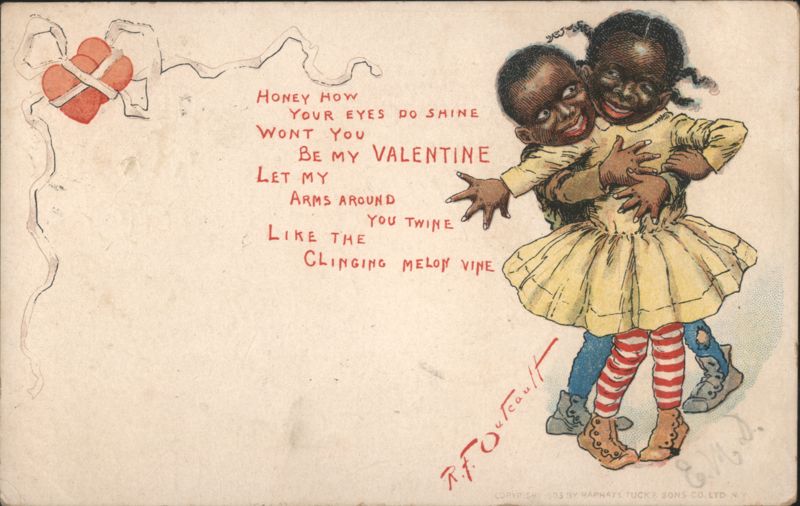 Honey how
your eyes do shine
Wont you
Be my VALENTINE
Let my
Arms around
you twine
Like the
Clinging melon vine
R.F. Outcault
COPYRIGHT 1903 BY RAPHAEL TUCK & SONS CO. LTD. N.Y.